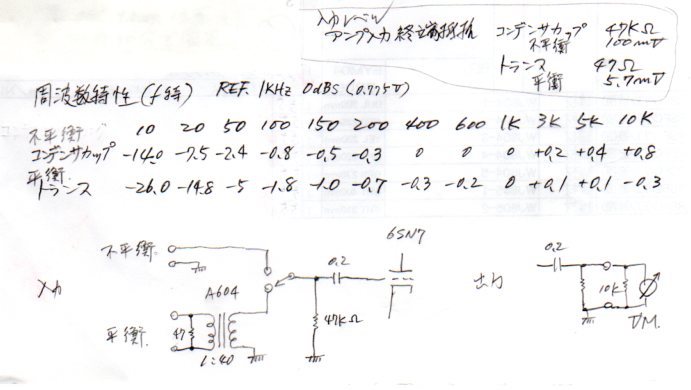 入力レベル
アンプ入力 終端抵抗
コンデンサカップ 47KΩ
不平衡 100mV
トランス 47Ω
平衡 5.7mV
周波数特性(f特) REF. 1KHz 0dBS (0.775V)
不平衡 10 20 50 100 150 200 400 600 1K 3K 5K 10K
コンデンサカップ -14.0 -7.5 -2.4 -0.8 -0.5 -0.3 0 0 0 +0.2 +0.4 +0.8
平衡.
トランス -26.0 -14.8 -5 -1.8 -1.0 -0.7 -0.3 -0.2 0 +0.1 +0.1 -0.3
不平衡.
6SN7
0.2
0.2
入力
A604
出力
10K
平衡.
47
47KΩ
V.M.
1:40